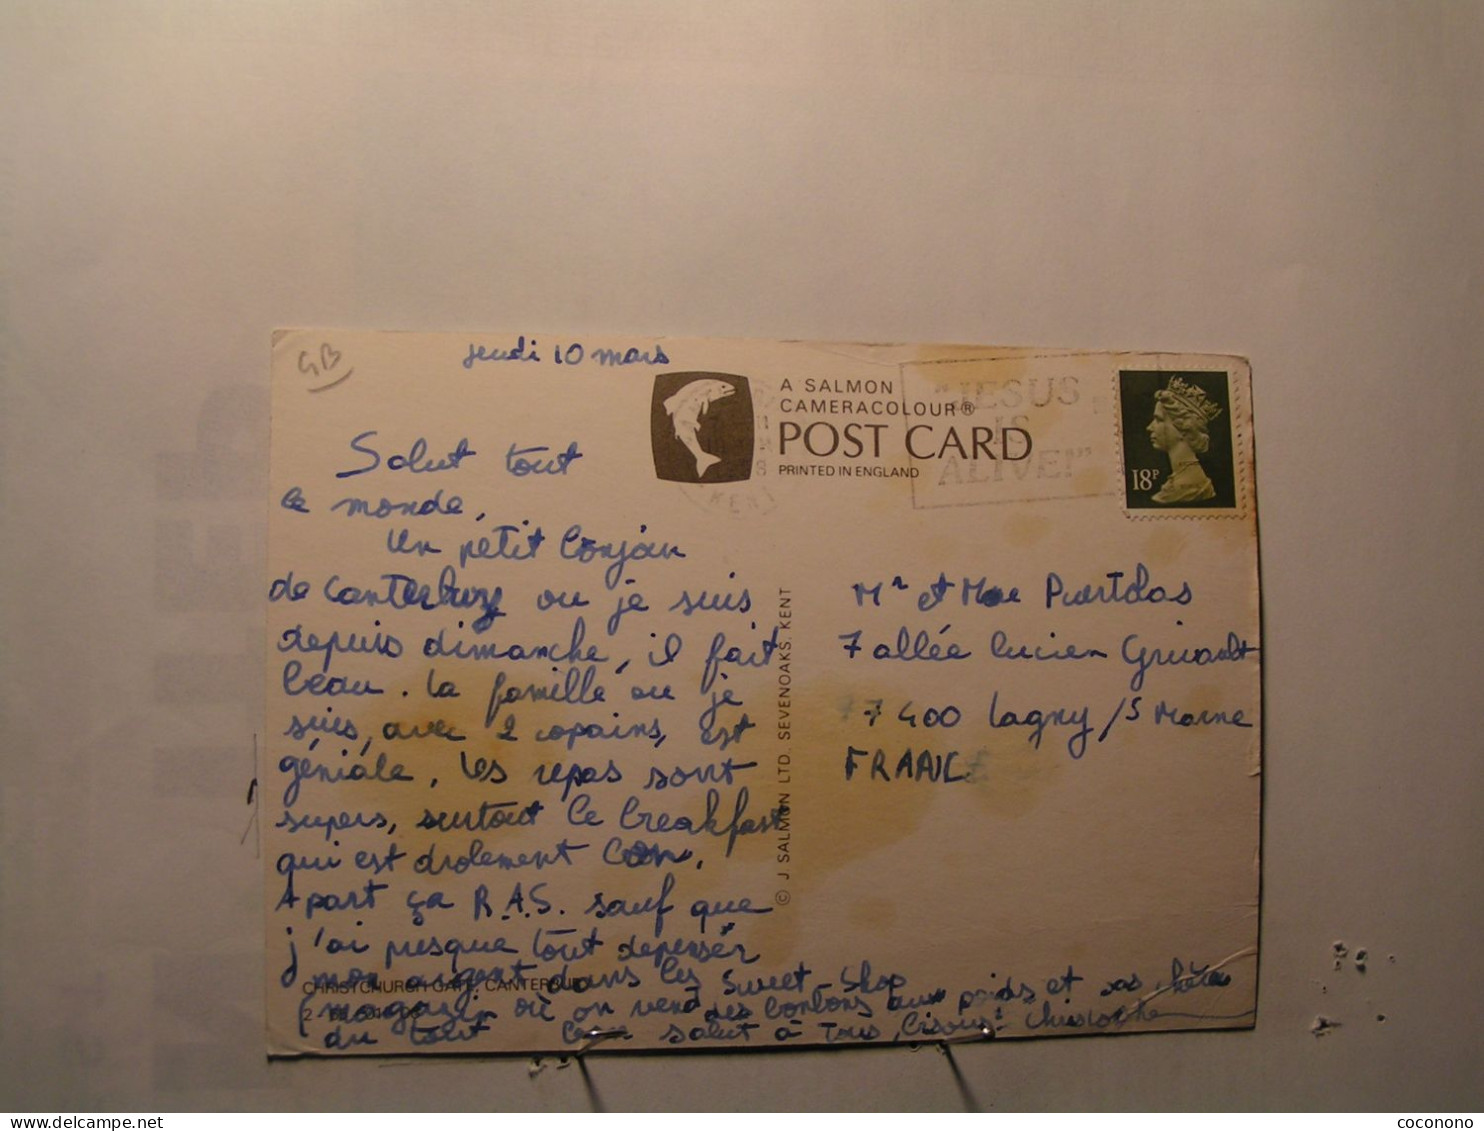 GB
jeudi 10 mars
A SALMON
CAMERACOLOUR®
POST CARD
PRINTED IN ENGLAND
KENT
"JESUS
IS
ALIVE!"
18P
Salut tout
le monde,
Un petit bonjour
de Canterbury ou je suis
depuis dimanche, il fait
beau. La famille ou je
suis, avec 2 copains, est
géniale, les repas sont
supers, surtout le breakfast
qui est drolement bon.
Apart ça R.A.S. sauf que
j'ai presque tout depensér
mon argent dans les Sweet-Shop
(magasin où on vend des bonbons aux poids et pas chères
du tout salut à tous, bisous! Christophe
CHRISTCHURCH GATE, CANTERBURY
© J SALMON LTD. SEVENOAKS. KENT
Mr et Mme
7 allée Lucien Grivault
77400 Lagny /S Marne
FRANCE
coconono